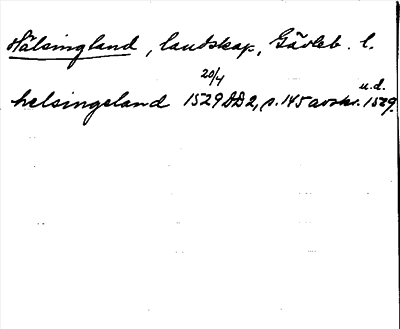 Hälsingland, landskap, Gävleb. l.
helsingeland 1529 20/4 DD2, s. 145 avskr. 1529 u.d.